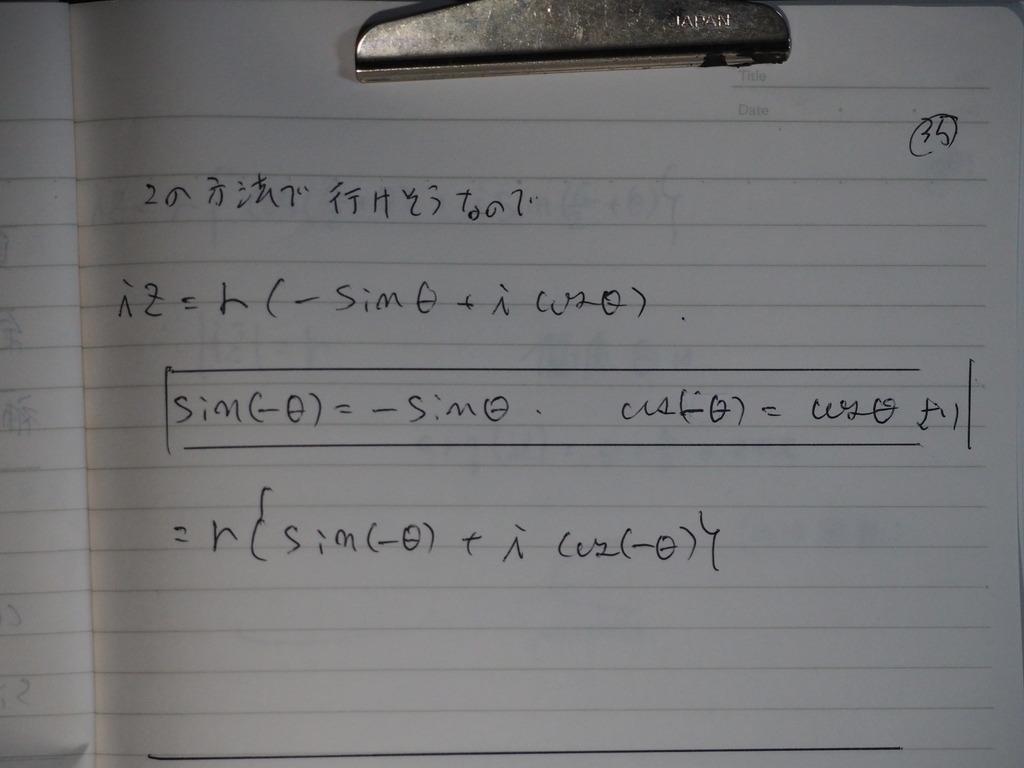 JAPAN
Title
Date
35
この方法で行けそうなので
iz = r(-sinθ + i cosθ).
sin(-θ) = -sinθ. cos(-θ) = cosθ より
= r{sin(-θ) + i cos(-θ)}